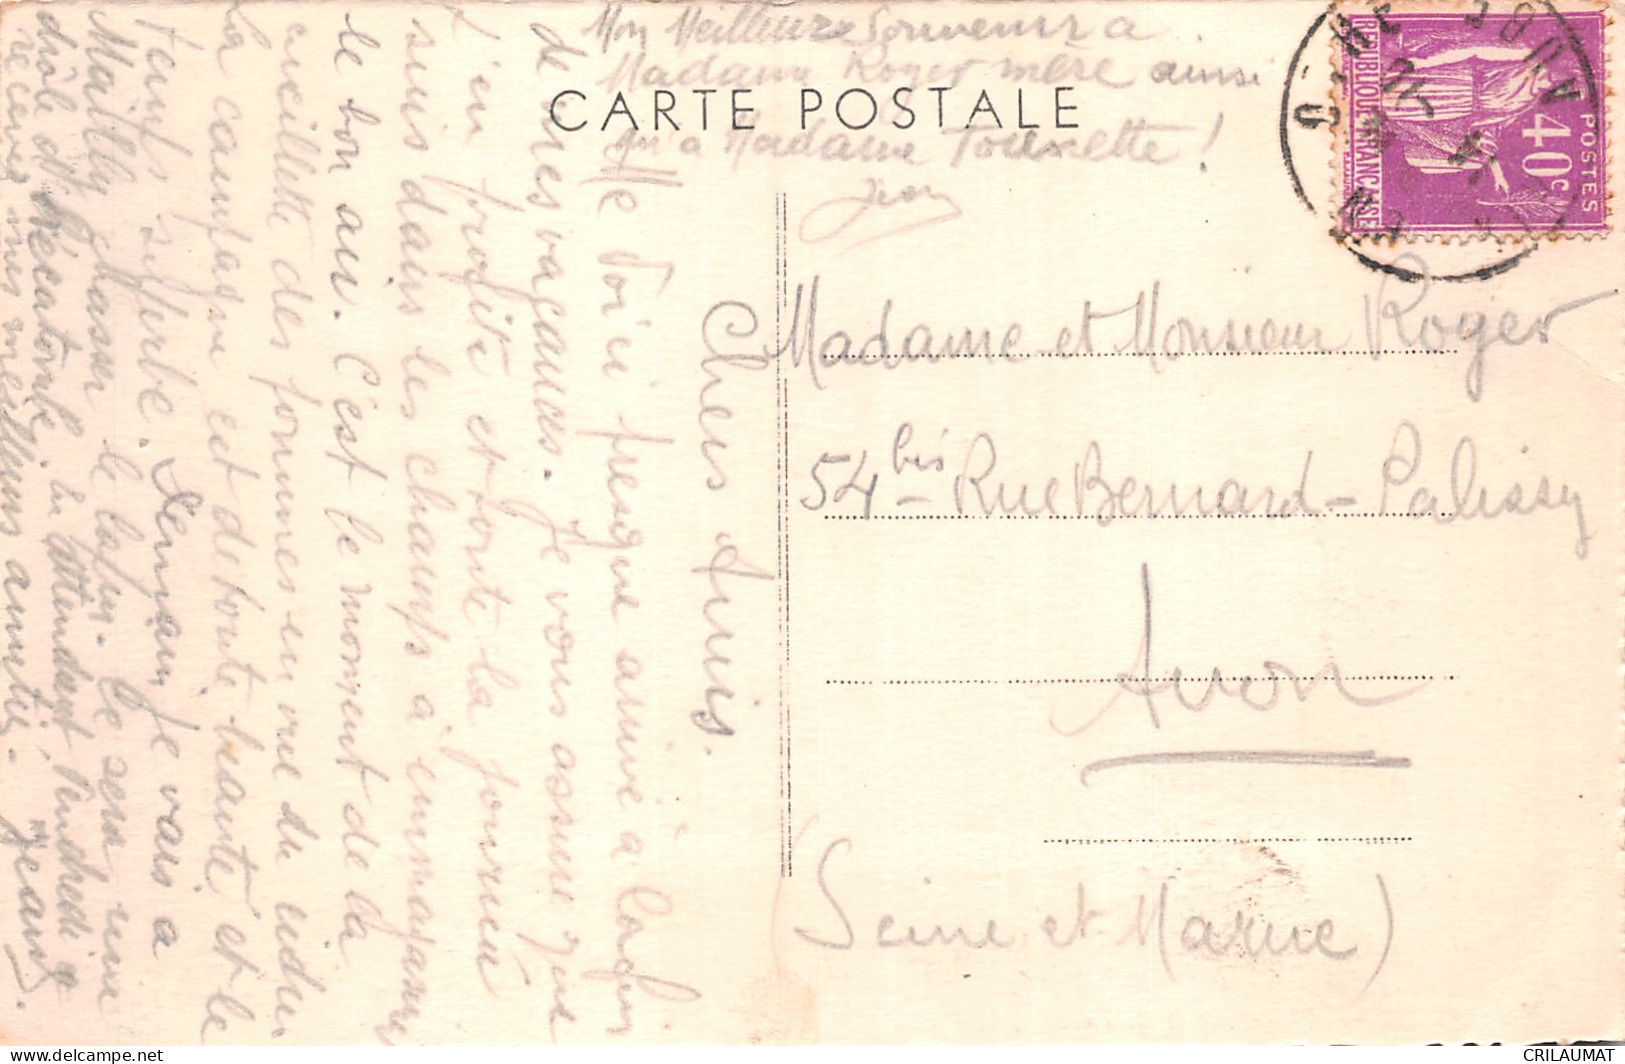 Mon Meilleurs Souvenirs a
Madame Roger mère ainsi
CARTE POSTALE
qu'a Madame Tourette !
Jean
REPUBLIQUE FRANÇAISE
POSTES
40c
AUBE
Madame et Monsieur Roger
54 bis Rue Bernard-Palissy
Avon
(Seine et Marne)
Chers Amis.
Me voici presque arrivé à la fin
de mes vacances. Je vous assure que
j'en profite et toute la journée
suis dans les champs à emmagasiner
le bon air. C'est le moment de la
cueillette des pommes en vue du cidre.
La campagne est de toute beauté et le
temps superbe. Demain je vais à
Mailly chasser le lapin. Ce sera une
drôle d'hécatombe. En attendant Vendredi
recevez mes meilleurs amitiés.
Jean
CRILAUMAT